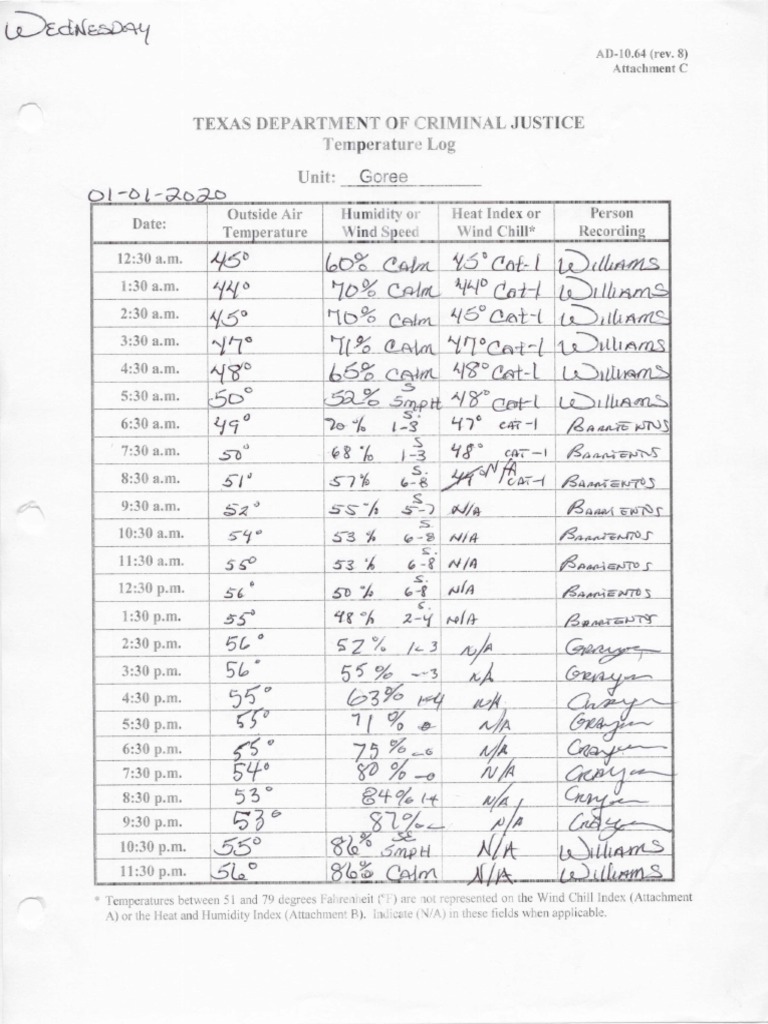 WEDNESDAY
AD-10.64 (rev. 8)
Attachment C
TEXAS DEPARTMENT OF CRIMINAL JUSTICE
Temperature Log
Unit: Goree
01-01-2020
Date: Outside Air Temperature Humidity or Wind Speed Heat Index or Wind Chill* Person Recording
12:30 a.m. 45° 60% CAlm 45° Cat-1 Williams
1:30 a.m. 44° 70% CAlm 44° Cat-1 Williams
2:30 a.m. 45° 70% CAlm 45° Cat-1 Williams
3:30 a.m. 47° 71% CAlm 47° Cat-1 Williams
4:30 a.m. 48° 65% CAlm 48° Cat-1 Williams
5:30 a.m. 50° 52% S 5mpH 48° Cat-1 Williams
6:30 a.m. 49° 70% S. 1-3 47° CAT-1 BARRIENTOS
7:30 a.m. 50° 68% S 1-3 48° CAT-1 BARRIENTOS
8:30 a.m. 51° 57% S. 6-8 N/A CAT-1 BARRIENTOS
9:30 a.m. 52° 55% S 5-7 N/A BARRIENTOS
10:30 a.m. 54° 53% S. 6-8 N/A BARRIENTOS
11:30 a.m. 55° 53% S. 6-8 N/A BARRIENTOS
12:30 p.m. 56° 50% S. 6-8 N/A BARRIENTOS
1:30 p.m. 55° 48% S. 2-4 N/A BARRIENTOS
2:30 p.m. 56° 52% 1-3 N/A
3:30 p.m. 56° 55% N/A
4:30 p.m. 55° 63% 1-4 N/A
5:30 p.m. 55° 71% N/A
6:30 p.m. 55° 75% N/A
7:30 p.m. 54° 80% N/A
8:30 p.m. 53° 84% N/A
9:30 p.m. 53° 87% N/A
10:30 p.m. 55° 86% SE 5mpH N/A Williams
11:30 p.m. 56° 86% CAlm N/A Williams
* Temperatures between 51 and 79 degrees Fahrenheit (°F) are not represented on the Wind Chill Index (Attachment
A) or the Heat and Humidity Index (Attachment B). Indicate (N/A) in these fields when applicable.